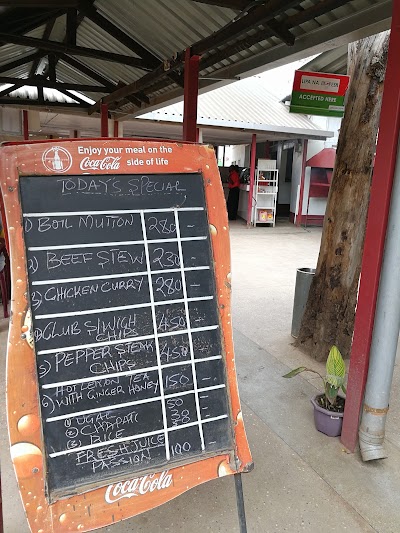 Enjoy your meal on the
Coca-Cola side of life
TODAYS SPECIAL
1) BOIL MUTTON 280 -
2) BEEF STEW 230 -
3) CHICKEN CURRY 280 -
4) CLUB S/WIGH 450 -
CHIPS
5) PEPPER STEAK 450 -
CHIPS
6) HOT LEMON TEA 150 -
WITH GINGER HONEY
UGALI 50
CHAPATI 30
RICE 50
FRESH JUICE 100 -
PASSION
Coca-Cola
LIPA NA M-PESA
ACCEPTED HERE